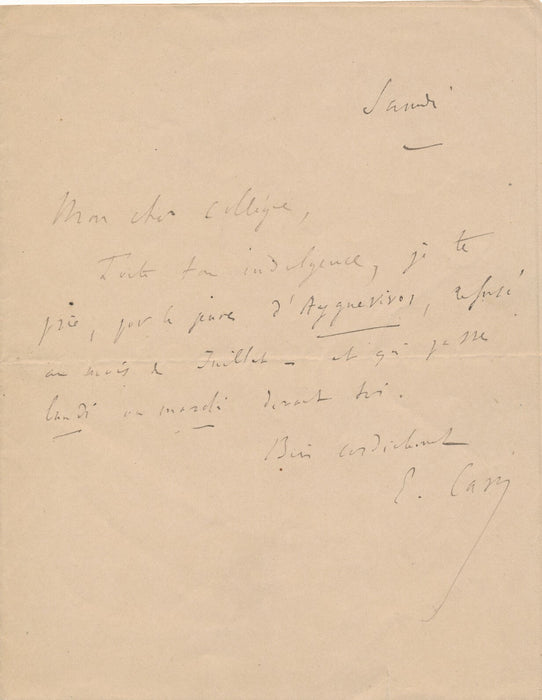 Samedi
Mon cher collègue,
Toute ton indulgence, je te
prie, pour le jeune d'Ayguesvives, refusé
au mois de Juillet – et qui passe
lundi ou mardi devant toi.
Bien cordialement
E.